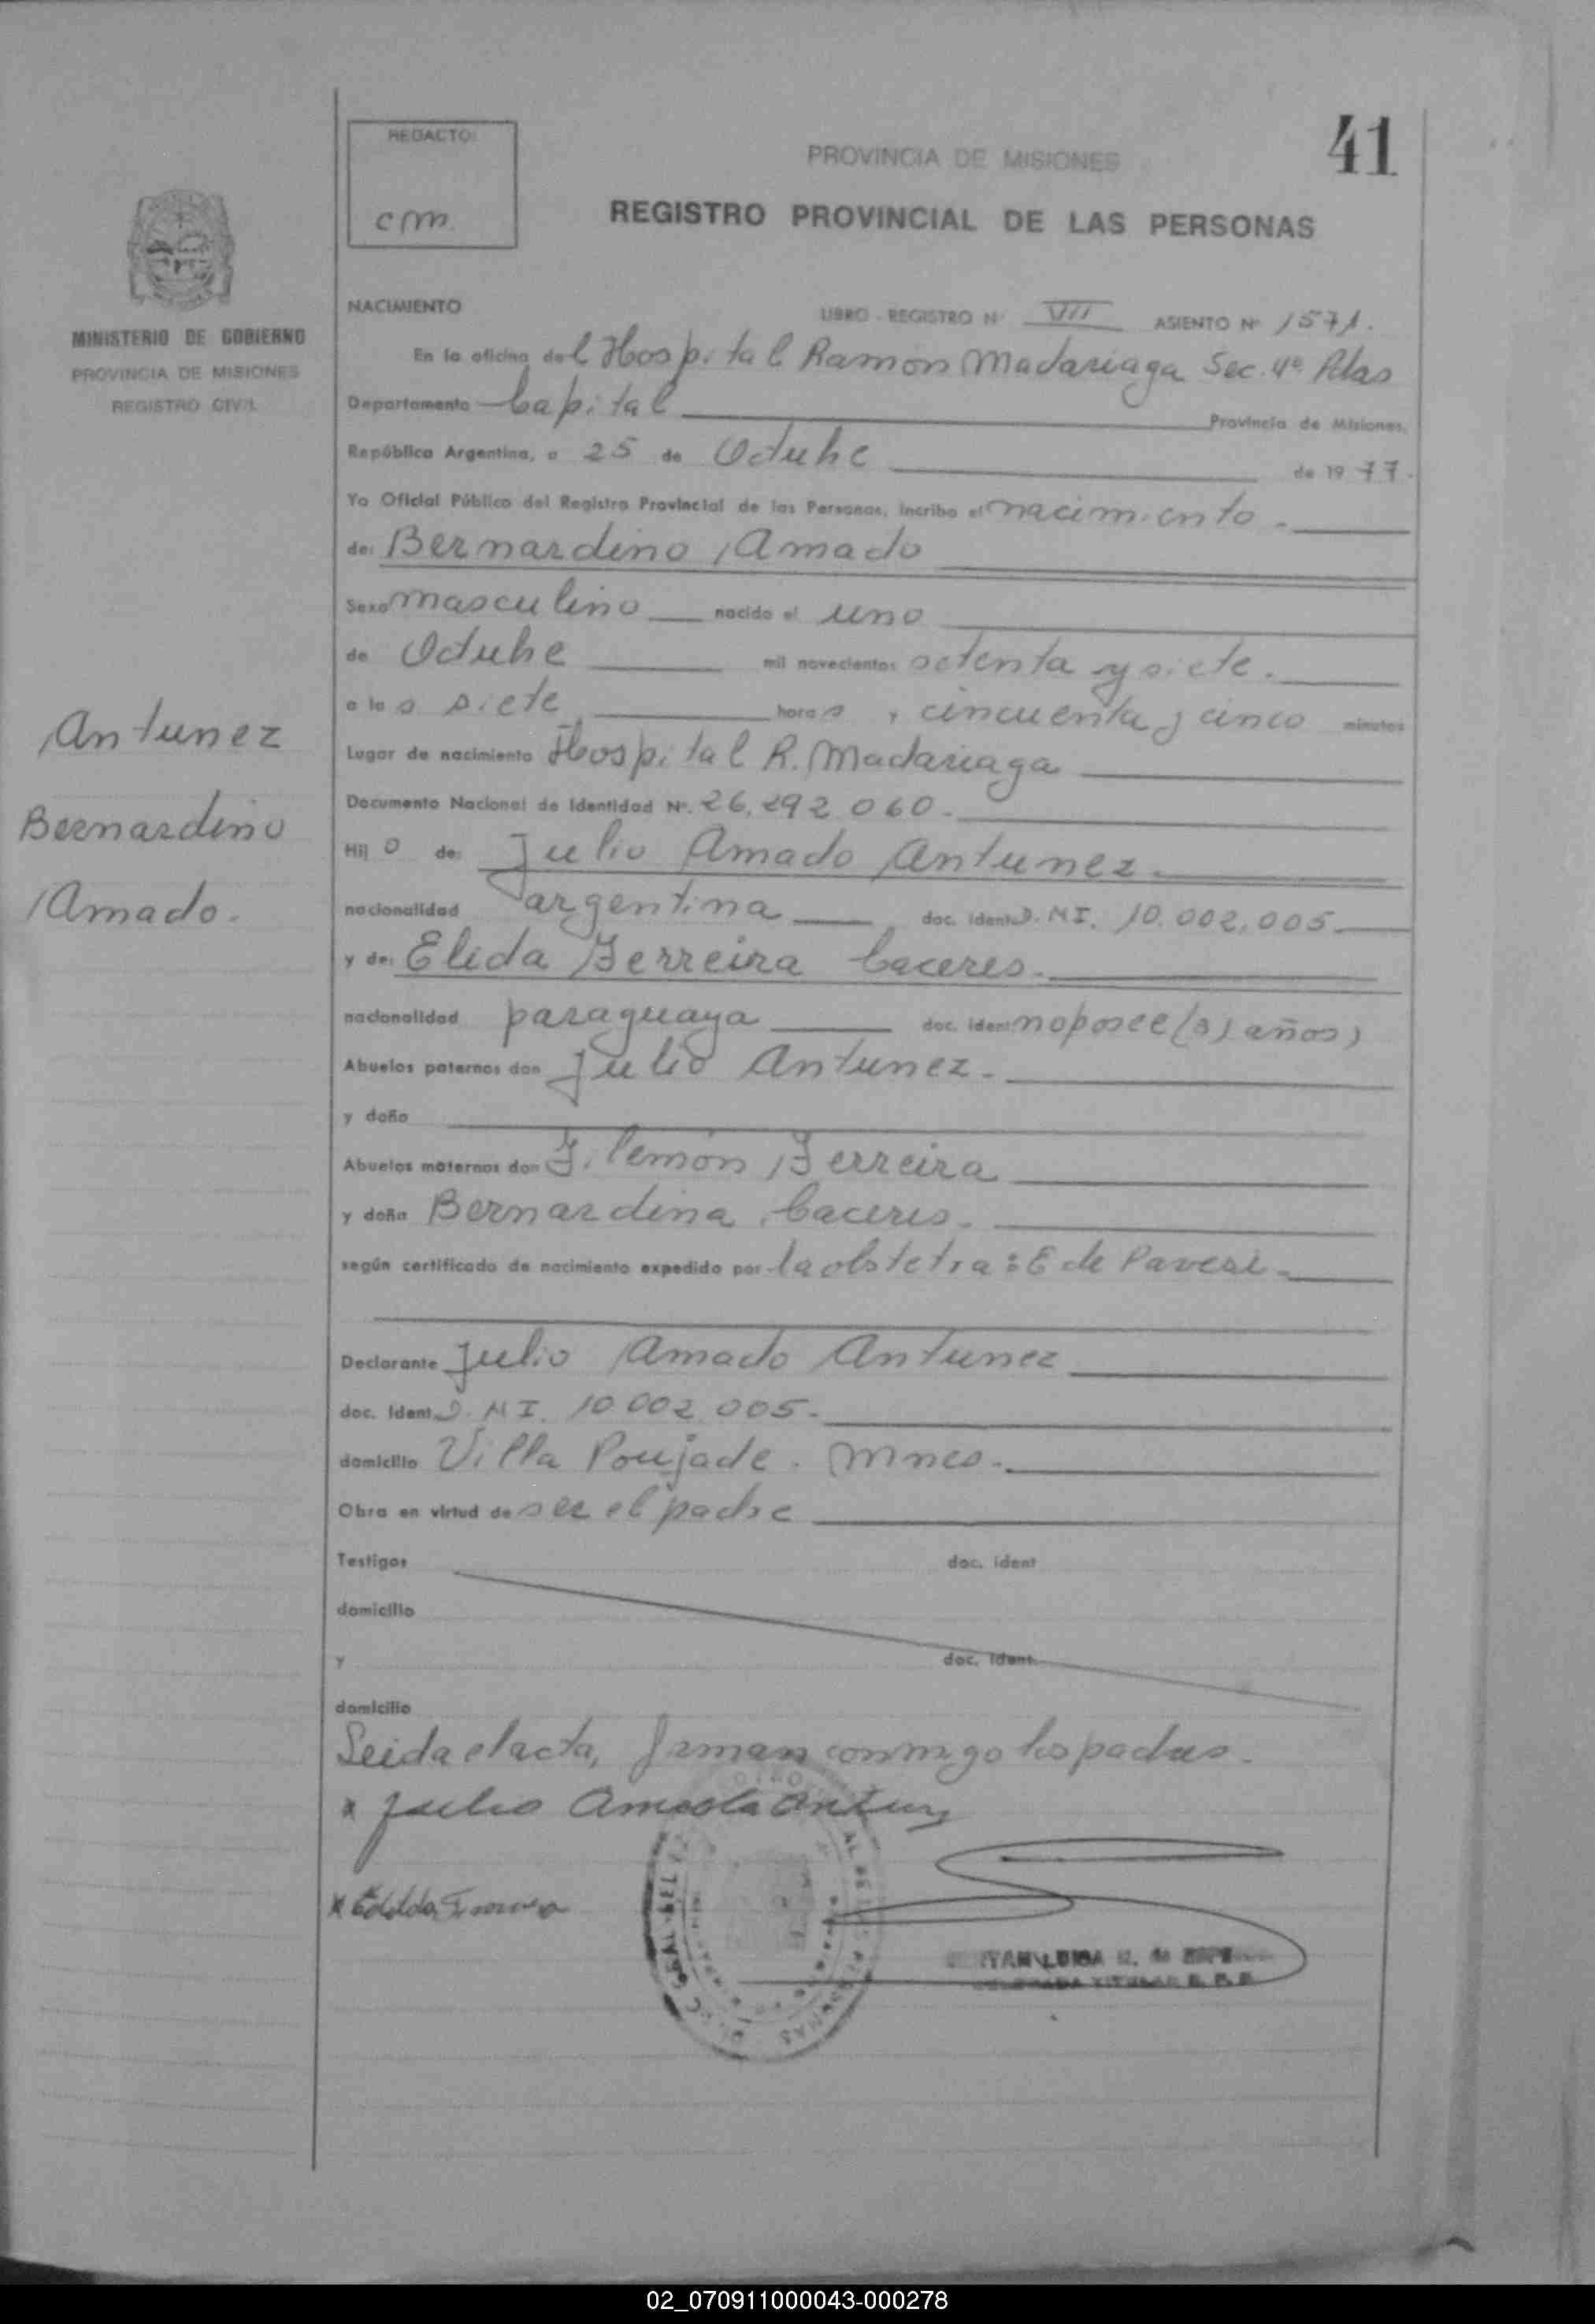 41
REDACTO:
cm.
PROVINCIA DE MISIONES
REGISTRO PROVINCIAL DE LAS PERSONAS
MINISTERIO DE GOBIERNO
PROVINCIA DE MISIONES
REGISTRO CIVIL
NACIMIENTO
LIBRO - REGISTRO Nº VII ASIENTO Nº 1571.
En la oficina del Hospital Ramón Madariaga Sec. 4ª Pdas
Departamento Capital Provincia de Misiones,
República Argentina, a 25 de Octubre de 1977.
Yo Oficial Público del Registro Provincial de las Personas, inscribo el nacimiento.
de: Bernardino Amado
Sexo masculino nacido el uno
de Octubre mil novecientos setenta y siete.
a las siete horas, cincuenta y cinco minutos
Lugar de nacimiento Hospital R. Madariaga
Documento Nacional de Identidad Nº. 26.292.060.
Hijo de: Julio Amado Antunez.
nacionalidad argentina doc. ident D.N.I. 10.002.005.
y de: Elida Ferreira Caceres.
nacionalidad paraguaya doc. ident no posee (31 años)
Abuelos paternos don Julio Antunez.
y doña
Abuelos maternos don Filemón Ferreira
y doña Bernardina Caceres.
según certificado de nacimiento expedido por la obstetra: E de Pavesi.
Declarante Julio Amado Antunez
doc. ident D.N.I. 10.002.005.
domicilio Villa Poujade. Mnes.
Obra en virtud de ser el padre
Testigos doc. ident
domicilio
y doc. ident.
domicilio
Leida el acta, firman conmigo los padres.
x Julio Amado Antunez
x Elida Ferreira
LUISA
Antunez
Bernardino
Amado.
02_070911000043-000278